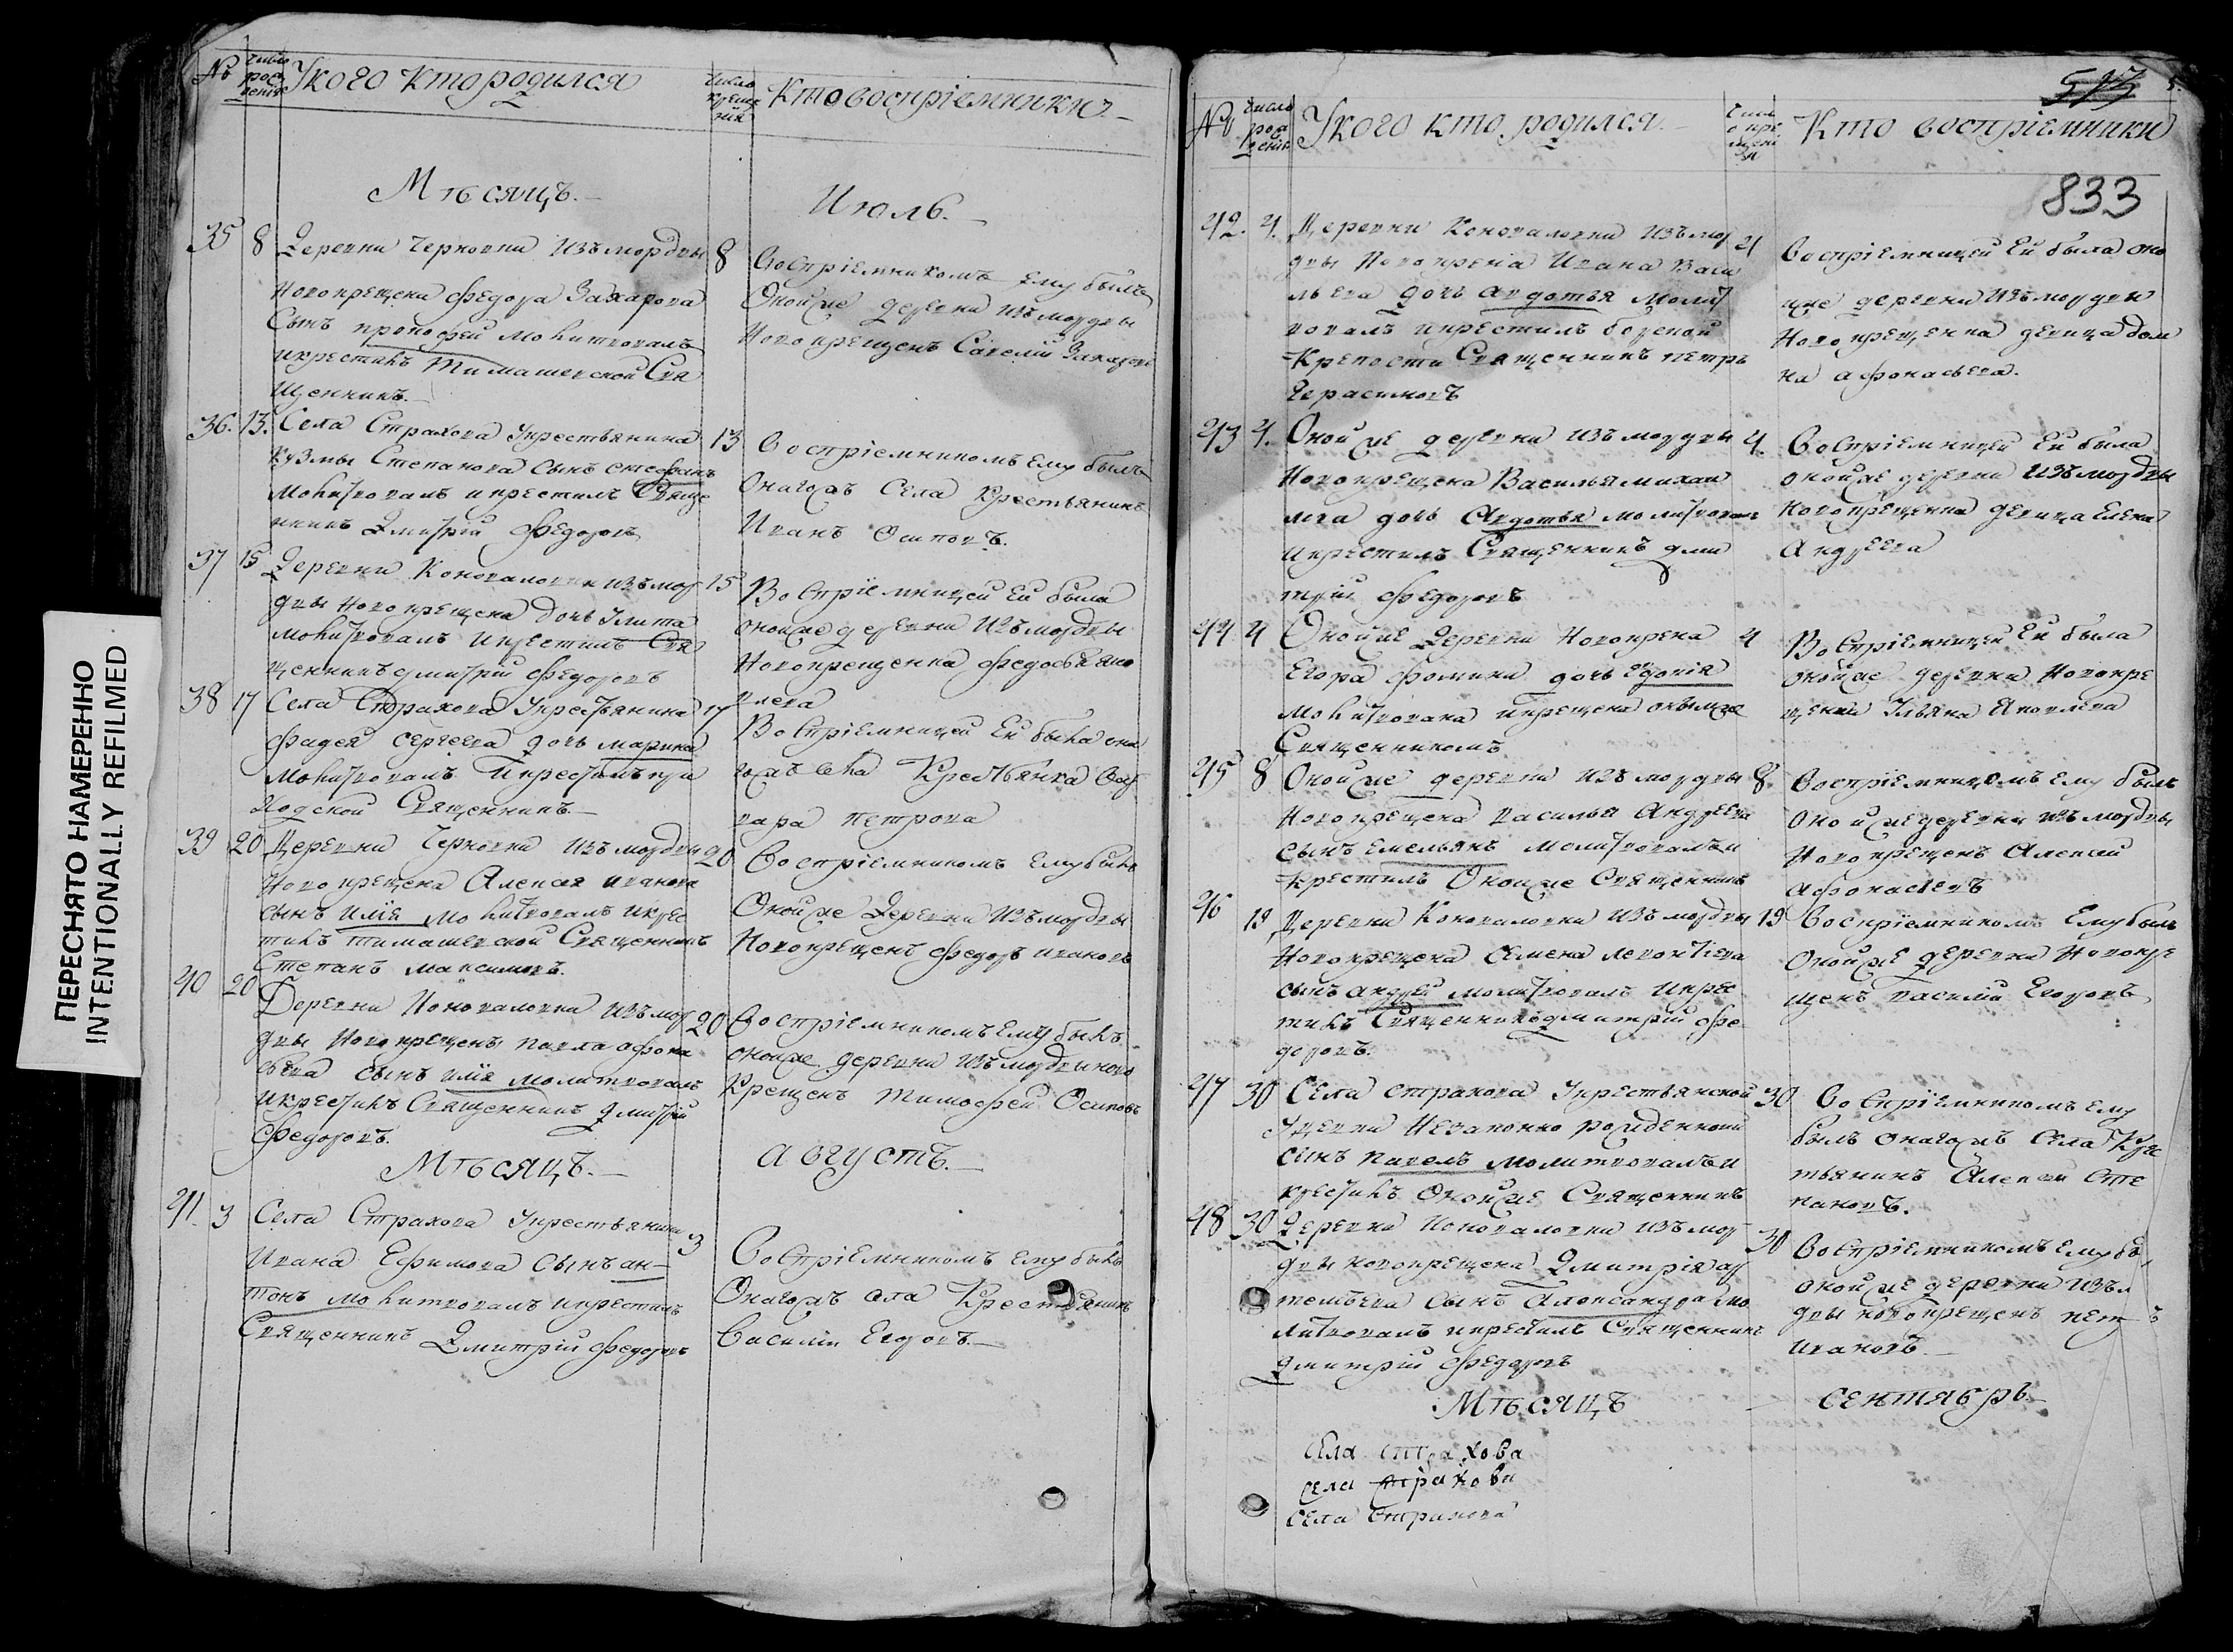 ПЕРЕСНЯТО НАМЕРЕННО
INTENTIONALLY REFILMED
№
число
рож
денія
У кого кто родился
число
креще
нія
Кто воспріемники
Мѣсяцъ.
Июль.
35 8
Деревни Черновки изъ мордвы
новокрещена Федора Захарова
сынъ прокофей молитвовалъ
и крестилъ Тимашевской Свя
щенникъ.
8
Воспріемникомъ ему былъ
Оной же деревни изъ мордвы
новокрещенъ Савелій Захаровъ
36. 13.
Села Страхова у крестьянина
кузмы Степанова сынъ стефанъ
молитвовалъ и крестилъ Свяще
нникъ Дмитрій Федоровъ
13
Воспріемникомъ ему былъ
Онагожъ Села крестьянинъ
Иванъ Осиповъ.
37 15
Деревни Коноваловки изъ мор
двы новокрещена дочь Улита
молитвовалъ и крестилъ Свя
щенникъ дмитрій Федоровъ
15
Воспріемницей ей была
оной же деревни изъ мордвы
Новокрещенка Федосья яко
влева
38 17
Села Страхова у крестьянина
фадея сергеева дочь марина
молитвовалъ и крестилъ при
ходской Священникъ.
17
Воспріемницей ей была она
гожъ села Крестьянка вар
вара петрова
39 20
Деревни Черновки изъ мордвы
Новокрещена Алексея иванова
сынъ илія молитвовалъ и крес
тилъ тимашевской Священникъ
Степанъ Максимовъ.
20
Воспріемникомъ ему былъ
Оной же Деревни изъ мордвы
Новокрещенъ Федоръ ивановъ
40 20
Деревни Коноваловки изъ мор
двы Новокрещенъ павла афона
сьева сынъ илія молитвовалъ
и крестилъ Священникъ дмитрій
Федоровъ.
20
Воспріемникомъ ему былъ
оной же деревни изъ мордвы ново
Крещенъ Тимофей Осиповъ
Мѣсяцъ.
августъ.
41. 3
Села Страхова у крестьянина
Ивана Ефимова сынъ ан-
тонъ молитвовалъ и крестилъ
Священникъ Дмитрій Федоровъ
3
Воспріемникомъ ему былъ
Онагожъ села Крестьянинъ
Василій Егоровъ.
513
№
число
рож
денія
У кого кто родился
числ
о кре
щені
я
Кто воспріемники
833
42. 4.
Деревни Коноваловки изъ мор
двы Новокрена Ивана Васи
льева дочь авдотья молит
вовалъ и крестилъ борской
Крепости Священникъ петръ
Герасимовъ
4
Воспріемницей ей была оно
й же деревни изъ мордвы
Новокрещенка девица дом
на афонасьева.
43 4.
Оной же деревни изъ мордвы
Новокрещена Василья михаи
лова дочь Авдотья молитвовалъ
и крестилъ Священникъ дми
трій Федоровъ
4.
Воспріемницей ей была
оной же деревни изъ мордвы
Новокрещенка девица Елена
Андреева
44 4
Оной же Деревни Новокрена
Егора фомина дочь евдокія
молитвована и крещена онымже
Священникомъ
4
Воспріемницей ей была
оной же деревни Новокре
щенка Ульяна Яковлева
45 8
Оной же деревни изъ мордвы
Новокрещена василья Андреева
сынъ емельянъ молитвовалъ и
крестилъ Оной же Священникъ
8
Воспріемницомъ ему былъ
Оной же деревни изъ мордвы
Новокрещенъ Алексей
афонасьевъ
46 19
Деревни Коноваловки изъ мордвы
Новокрещена Семена леонтіева
сынъ андрей молитвовалъ и крес
тилъ Священникъ дмитрій Фе
доровъ.
19
Воспріемникомъ ему былъ
Оной же деревни Новокре
щенъ василій Егоровъ
47 30
Села страхова У крестьянской
девки незаконно рожденной
сынъ павелъ молитвовалъ и
крестилъ оной же Священникъ
30
Воспріемникомъ ему
былъ онагожъ села Крес
тьянинъ Алексей Сте
пановъ.
48 30
Деревни Коноваловки изъ мор
двы новокрещена Дмитрія ар
темьева сынъ Александра мо
литвовалъ и крестилъ Священникъ
дмитрій Федоровъ
30
Воспріемникомъ ему бы
оной же деревни изъ м
двы новокрещенъ пет ъ
ивановъ.
Мѣсяцъ
сентябрь
села страхова
села страхова
села страхова